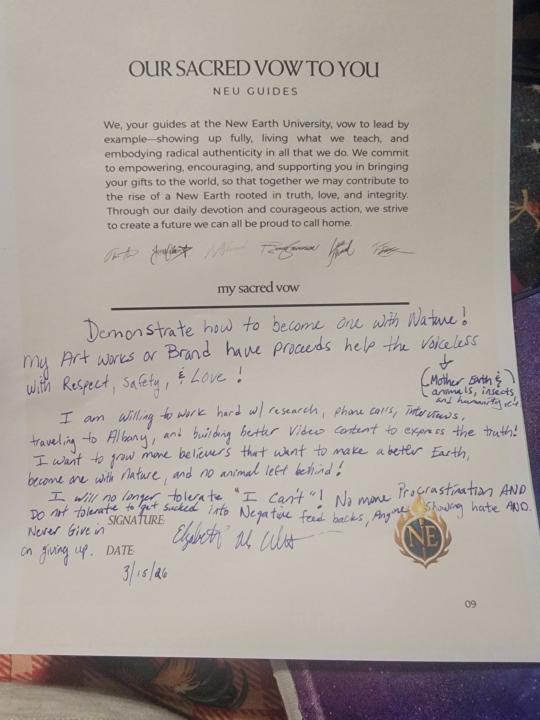 OUR SACRED VOW TO YOU
NEU GUIDES
We, your guides at the New Earth University, vow to lead by
example—showing up fully, living what we teach, and
embodying radical authenticity in all that we do. We commit
to empowering, encouraging, and supporting you in bringing
your gifts to the world, so that together we may contribute to
the rise of a New Earth rooted in truth, love, and integrity.
Through our daily devotion and courageous action, we strive
to create a future we can all be proud to call home.
my sacred vow
Demonstrate how to become one with Nature!
my Art works or Brand have proceeds help the voiceless
with Respect, Safety, & Love!
(Mother Earth &
animals, insects
and humanity
I am willing to work hard w/ research, phone calls, interviews,
traveling to Albany, and building better video content to express the truth!
I want to grow more believers that want to make a better Earth,
become one with nature, and no animal left behind!
I will no longer tolerate "I can't"! No more Procrastination AND
Do not tolerate to get sucked into Negative feed backs, showing hate AND.
Never Give in
on giving up.
SIGNATURE:
Elizabeth
DATE:
3/15/26
NE
09